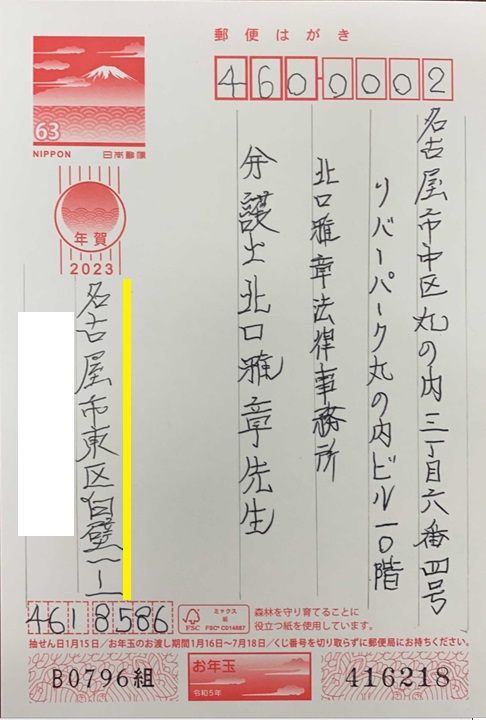 郵便はがき
460-0002
名古屋市中区丸の内三丁目六番四号
リバーパーク丸の内ビル一〇階
北口雅章法律事務所
弁護士北口雅章先生
63
NIPPON 日本郵便
年賀
2023
名古屋市東区白壁一ー一
4618586
FSC
ミックス
紙
FSC® C014687
森林を守り育てることに
役立つ紙を使用しています。
抽せん日1月15日/お年玉のお渡し期間1月16日〜7月18日/くじ番号を切り取らずに郵便局にお持ちください。
B0796組
お年玉
令和5年
416218